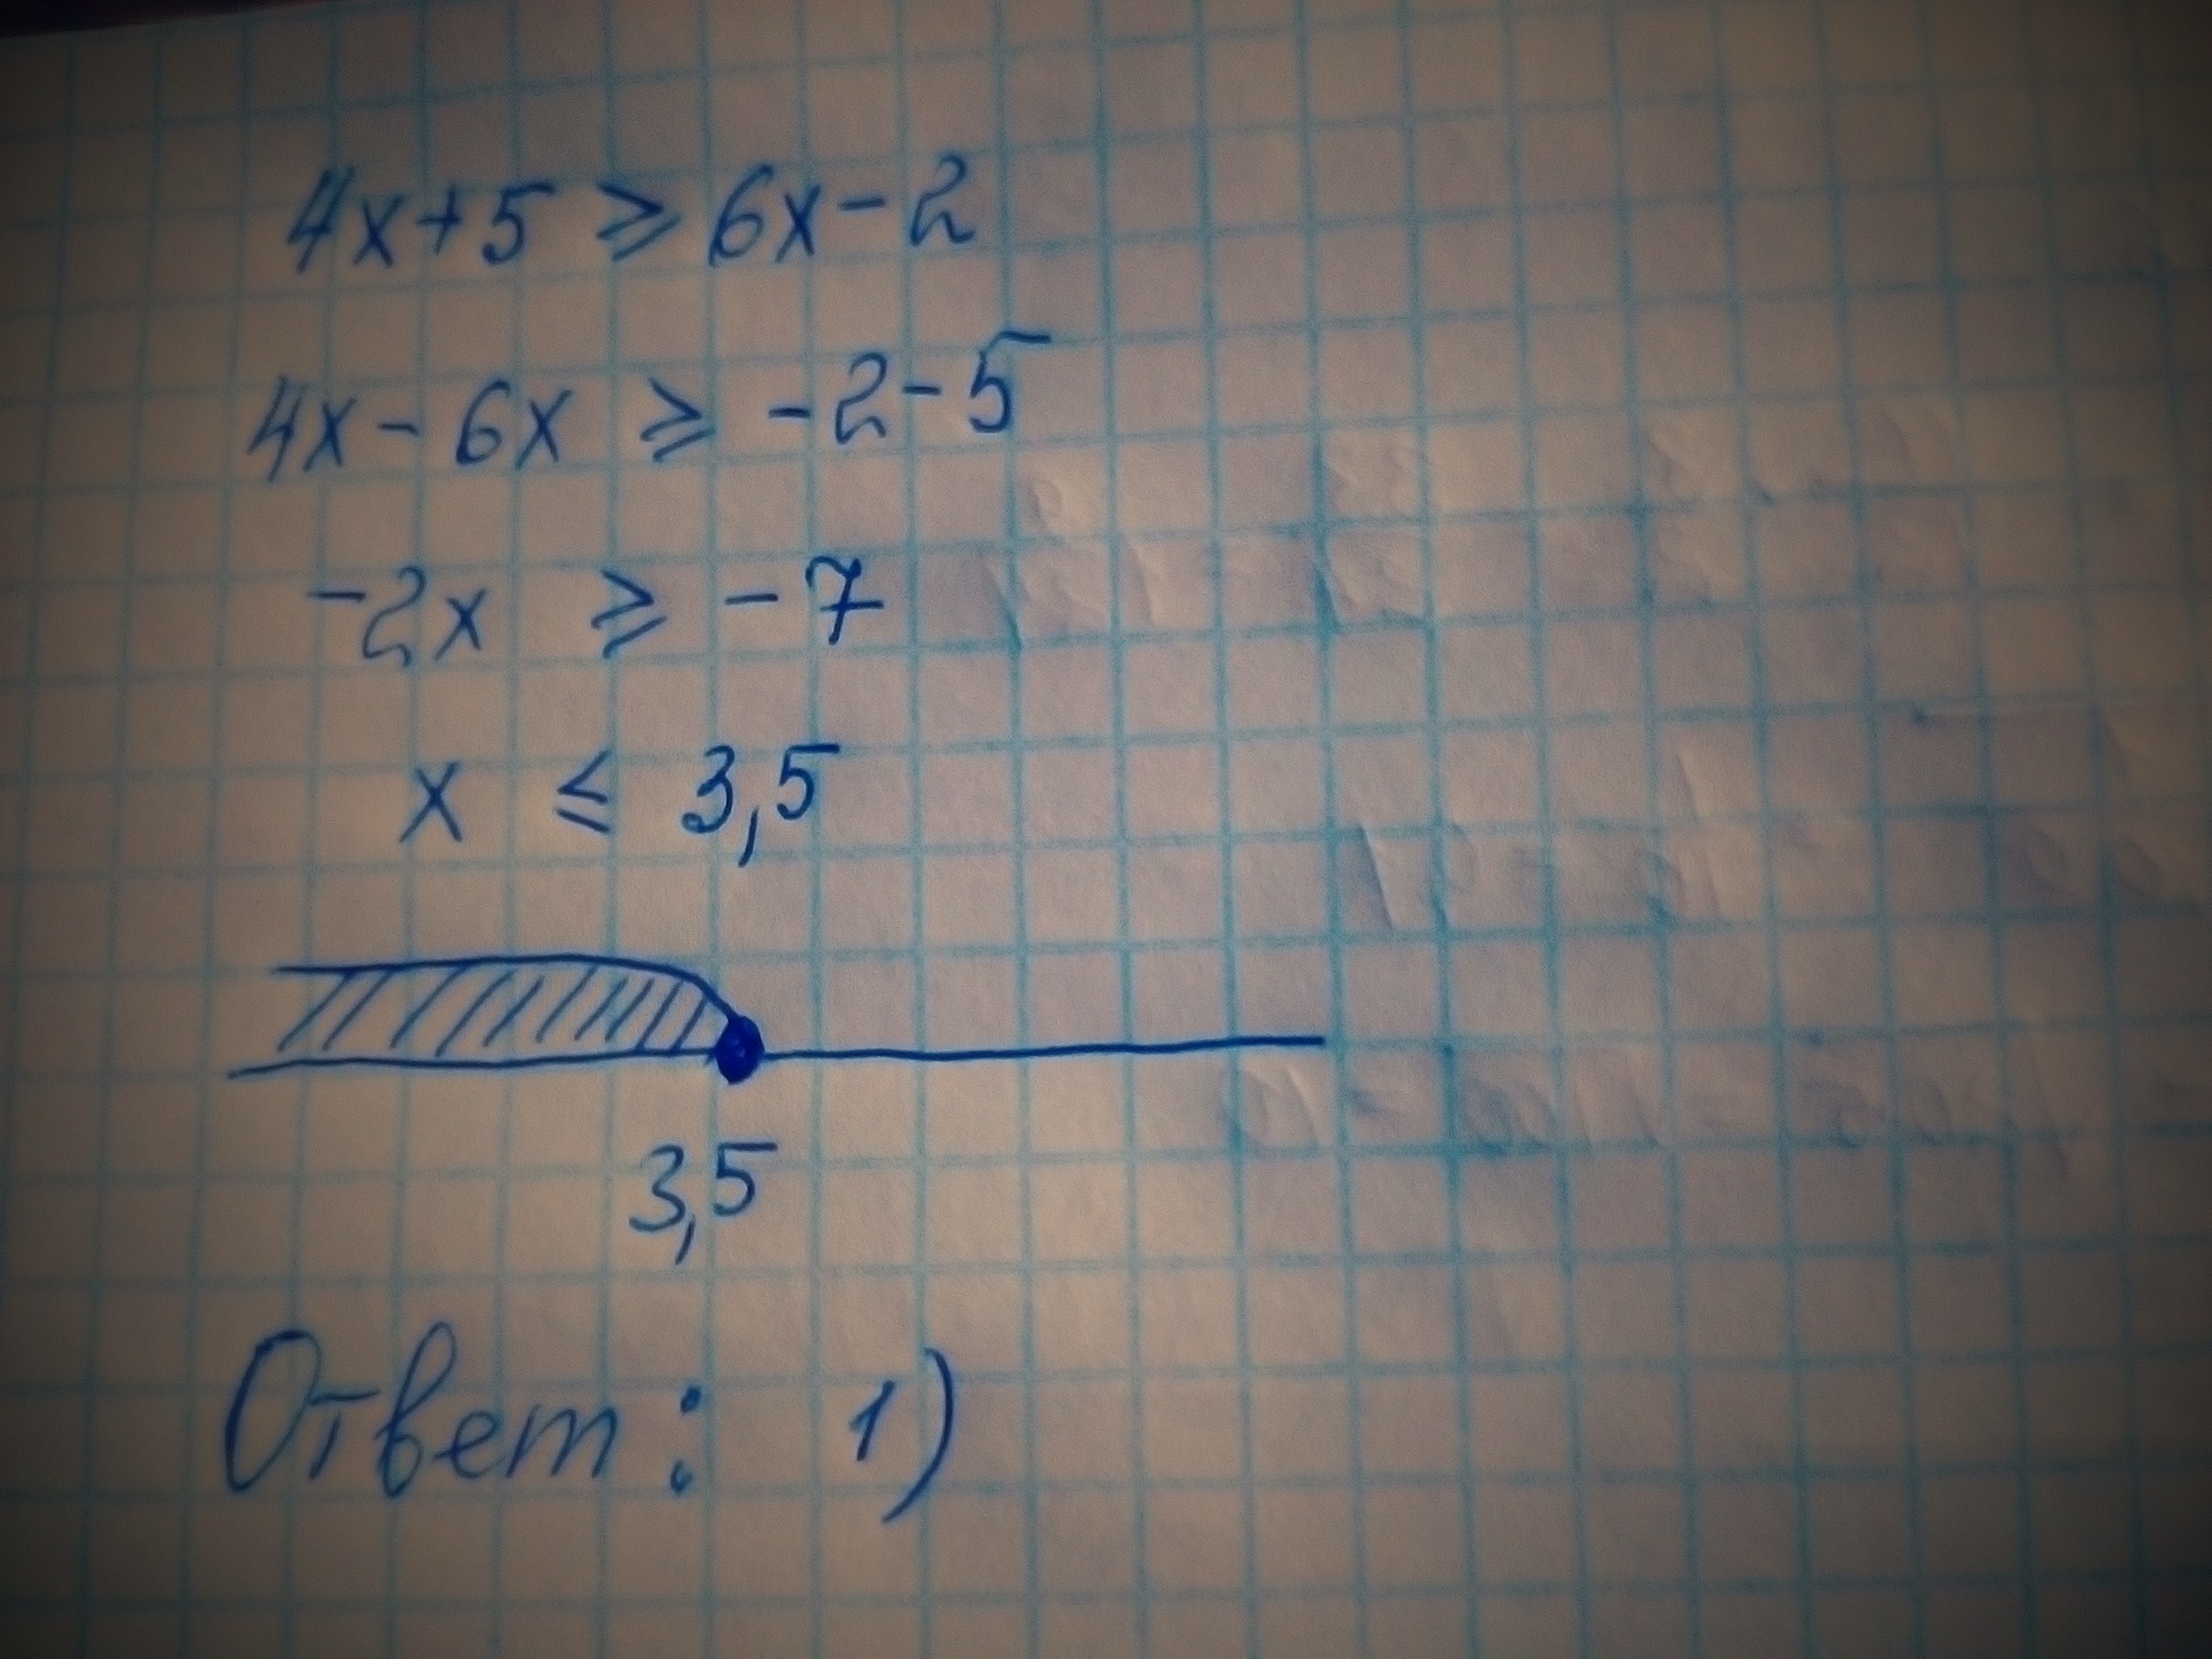 4x+5 ⩾ 6x-2
4x-6x ⩾ -2-5
-2x ⩾ -7
x ⩽ 3,5
3,5
Ответ: 1)